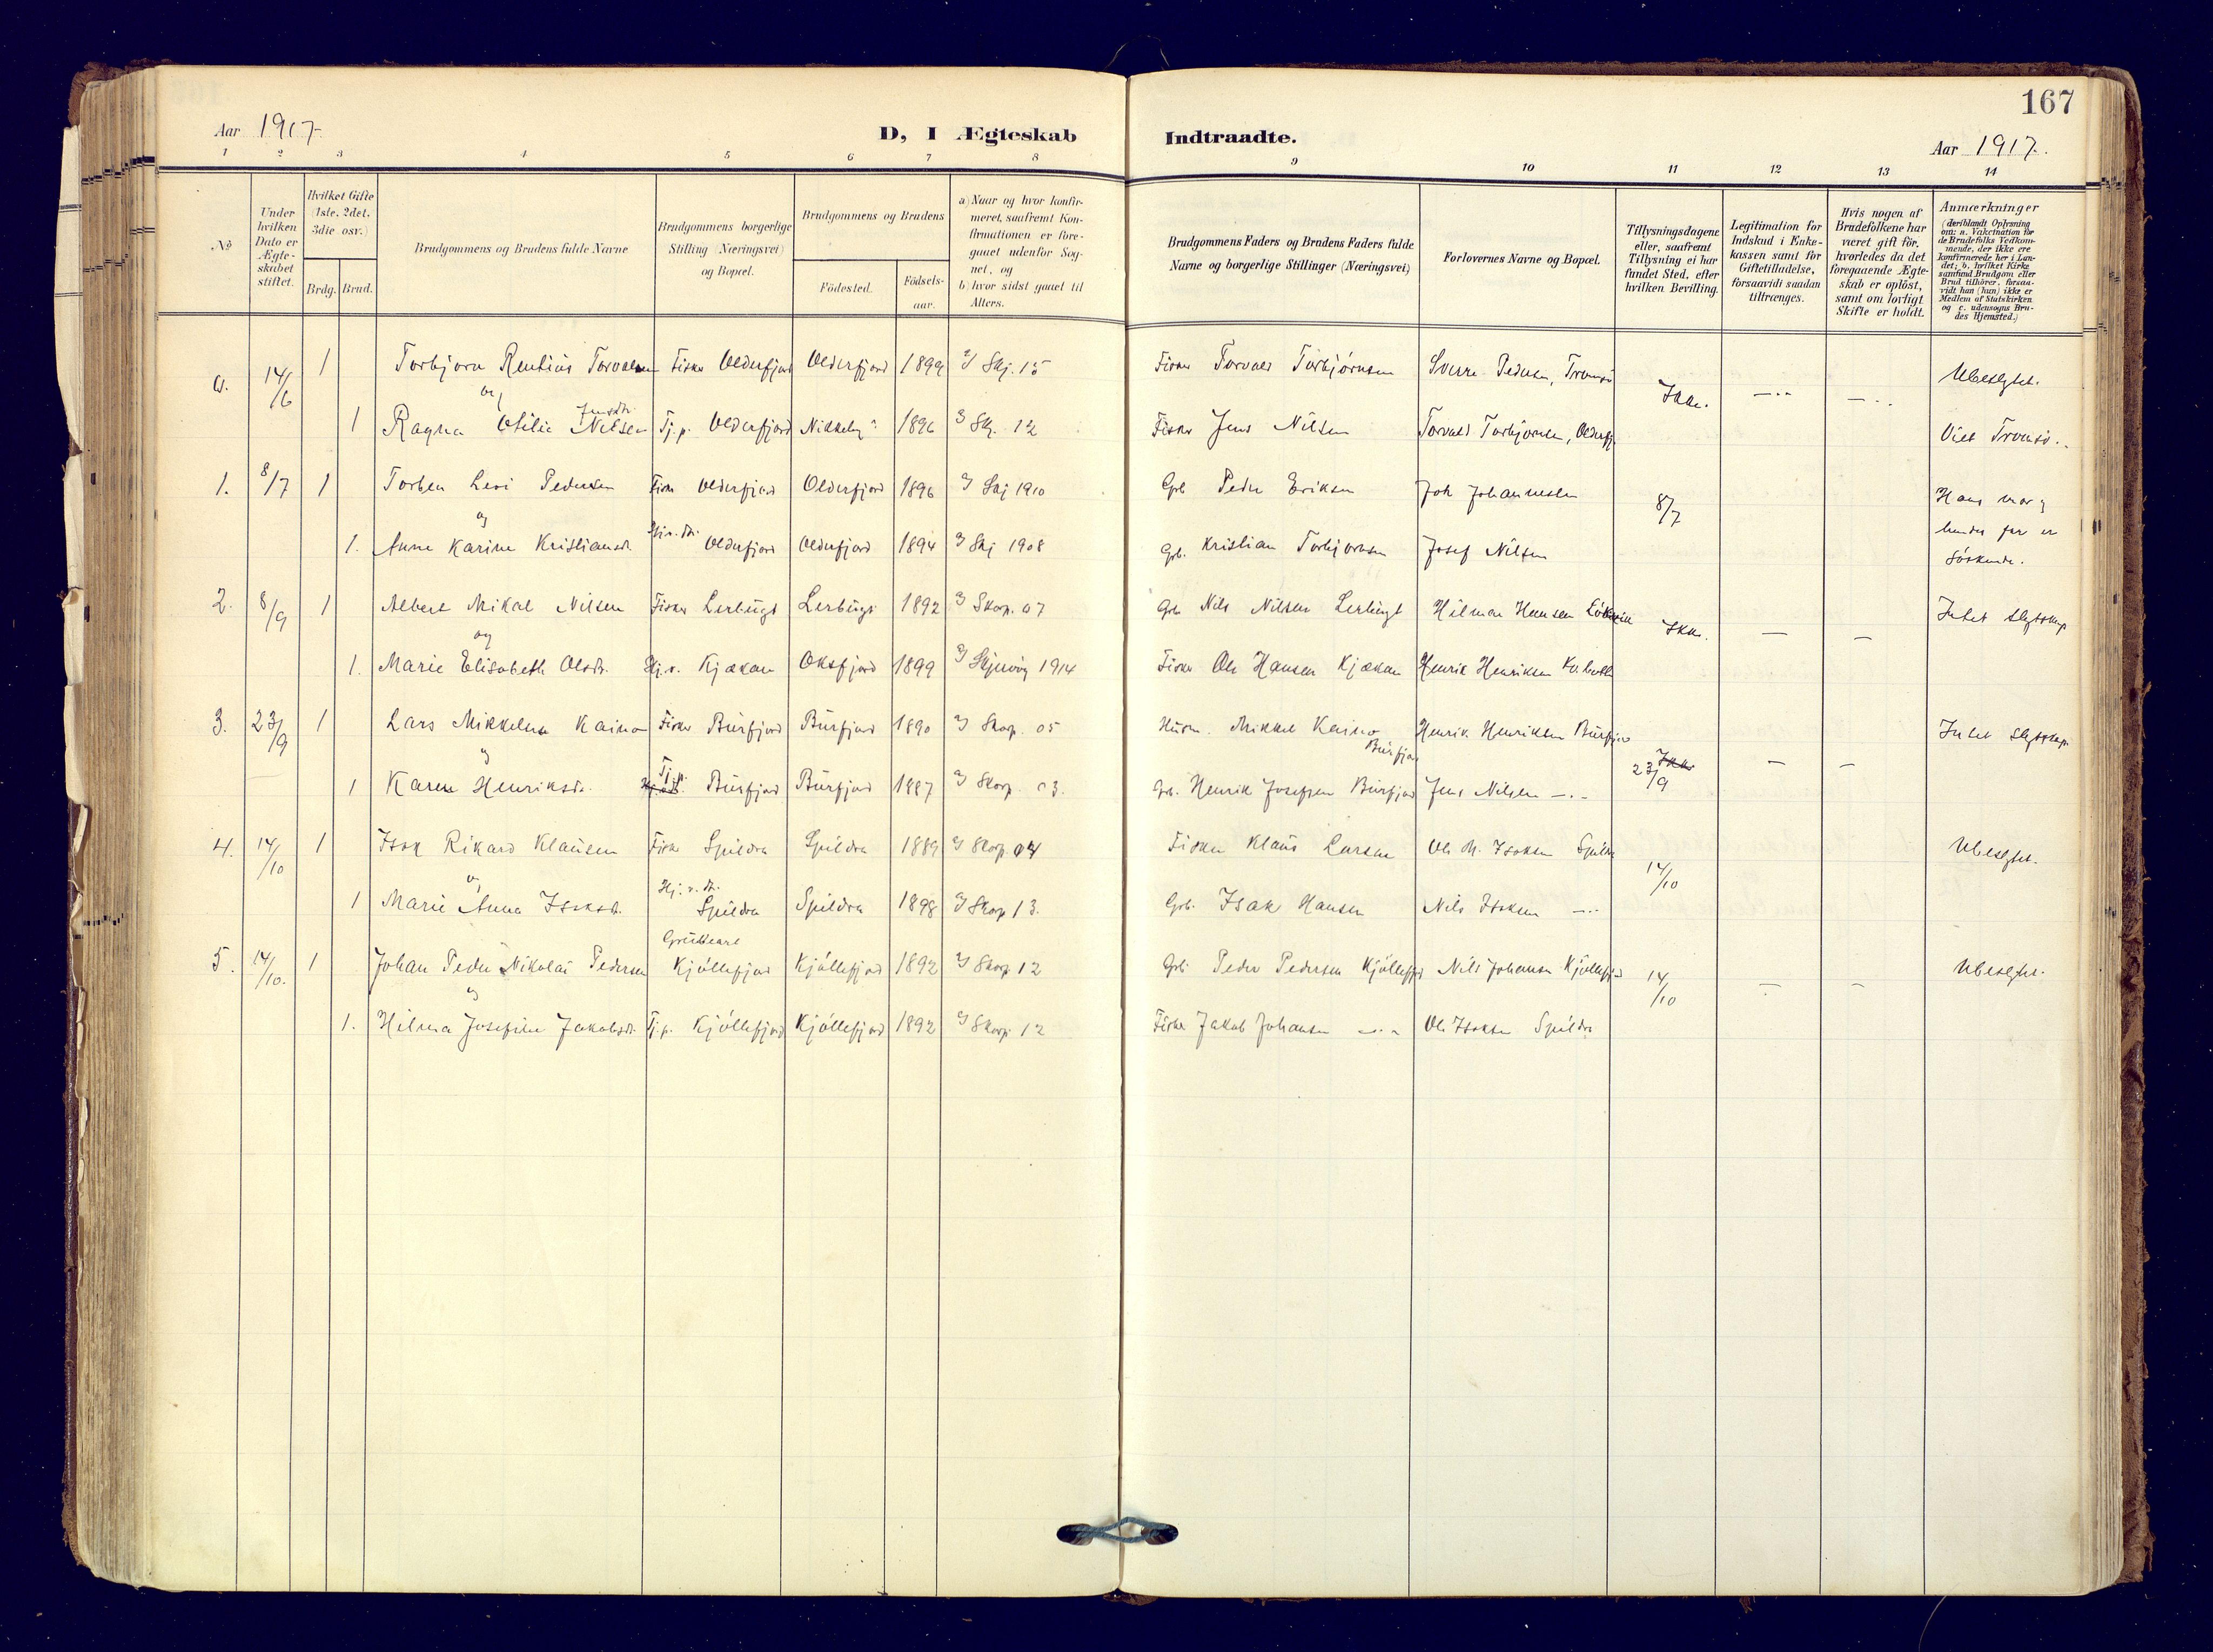 167
Aar 1917.
D, I Ægteskab Indtraadte.
Aar 1917.
1 2 3 4 5 6 7 8 9 10 11 12 13 14
No
Under hvilken Dato er Ægteskabet stiftet.
Hvilket Gifte (1ste, 2det, 3die osv.)
Brdg. Brud.
Brudgommens og Brudens fulde Navne
Brudgommens borgerlige Stilling (Næringsvei) og Bopæl.
Brudgommens og Brudens
Födested.
Födselsaar.
a) Naar og hvor konfirmeret, saafremt Konfirmationen er foregaaet udenfor Sognet, og
b) hvor sidst gaaet til Alters.
Brudgommens Faders og Brudens Faders fulde Navne og borgerlige Stillinger (Næringsvei)
Forlovernes Navne og Bopæl.
Tillysningsdagene eller, saafremt Tillysning ei har fundet Sted, efter hvilken Bevilling.
Legitimation for Indskud i Enkekassen samt for Giftetilladelse, forsaavidt saadan tiltrænges.
Hvis nogen af Brudefolkene har været gift för, hvorledes da det foregaaende Ægteskab er oplöst, samt om lovligt Skifte er holdt.
Anmærkninger
(deriblandt Oplysning om: a. Vakcination for de Brudefolks Vedkommende, der ikke ere konfirmerede her i Landet; b. hvilket Kirkesamfund Brudgom eller Brud tilhörer, forsaavidt han (hun) ikke er Medlem af Statskirken og c. udensogns Brudes Hjemsted.)
a. 14/6 1 Torbjorn Rentius Torvalsen Fisker Olderfjord Olderfjord 1899 I Skj. 15 Fisker Torvald Torbjörnsen Sverre Pedersen, Tromsö Ubeslgtet.
og Jensdtr. Ikke. —..— —..
1 Ragna Otilie Nilsen Tj.p. Olderfjord Nikkeby 1896 I Skj. 12 Fisker Jens Nilsen Torvald Torbjornsen, Olderfj. Viet Tromsö.
1. 8/7 1 Torben Levi Pedersen Fisker Olderfjord Olderfjord 1896 I Skj 1910 Grb Peder Eriksen Joh Johannesen 8/7 Hans mor og
og
1. Anne Karine Kristiansdt. Olderfjord Olderfjord 1894 I Skj 1908 Grb. Kristian Torbjornsen Josef Nilsen hendes far er
Söskende.
2. 8/9 1 Albert Mikal Nilsen Fisker Lerbugt Lerbugt 1892 I Skorp. 07 Grb Nils Nilsen Lerbugt Hilmar Hansen Ikke. — — Intet slgtskap
og
1. Marie Elisabeth Olsdtr. Kjækan Oksfjord 1899 I Skjervöy 1914 Fisker Ole Hansen Kjækan Henrik Henriksen
3. 23/9 1 Lars Mikkelsen Kaino Fisker Burfjord Burfjord 1890 I Skorp. 05 Husm. Mikkel Kaino Burfjord Henrik Henriksen Burfjord Intet slgtskap.
og Tj.p. Ikke 23/9 — —
1 Karen Henriksdtr. Burfjord Burfjord 1887 I Skorp. 03. Grb. Henrik Josefsen Burfjord Jens Nilsen —.–
4. 14/10 1 Isak Rikard Klausen Fisker Spildra Spildra 1889 I Skorp 04 Fisker Klaus Larsen Ole M. Isaksen Spildra 14/10 Ubeslgtet.
og
1 Marie Anna Isaksdt. Spildra Spildra 1898 I Skorp 13. Grb. Isak Hansen Nils Isaksen —..
5. 14/10. 1 Johan Peder Nikolai Pedersen Kjöllefjord Kjöllefjord 1892 I Skorp 12 Grb. Peder Pedersen Kjöllefjord Nils Johansen Kjöllefjord 14/10 — — Ubeslgtet.
og
1. Hilma Josefine Jakobsdt. Tj.p. Kjöllefjord Kjöllefjord 1892 I Skorp. 12 Fisker Jakob Johansen —..– Ole Isaksen Spildra